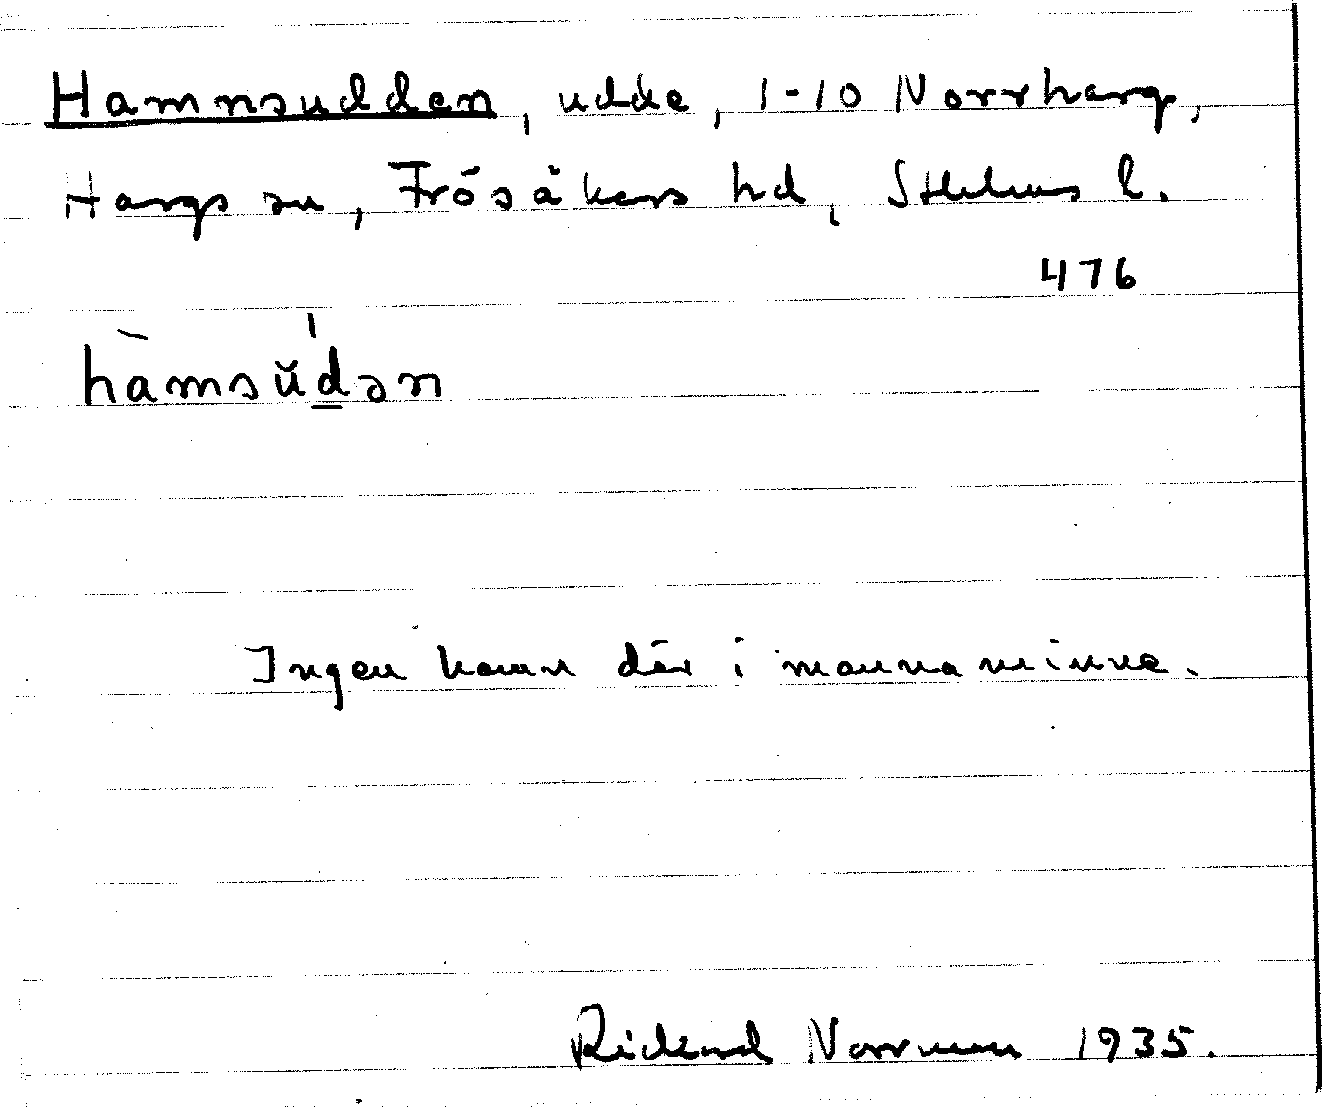 Hamnsudden, udde, 1-10 Norrharg,
Hargs sn, Frösåkers hd, Sthlms l.
476
hàmsŭ̍d̲ən
Ingen hamn där i manna minne.
Rickard Norrman 1935.